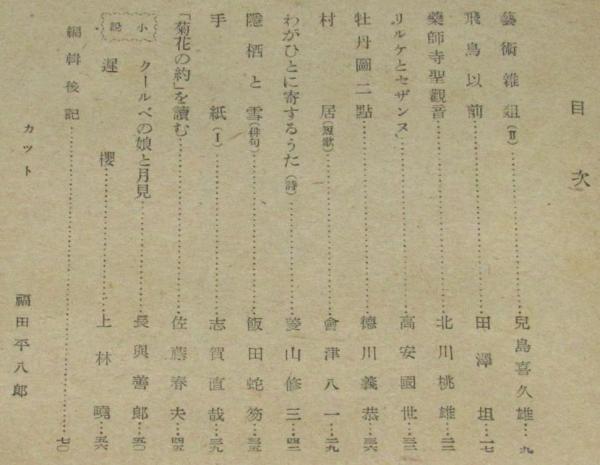 目次
藝術雜爼(Ⅱ)……兒島喜久雄…九
飛鳥以前……田澤坦…一七
藥師寺聖觀音……北川桃雄…二二
リルケとセザンヌ……高安國世…三二
牡丹圖二點……德川義恭…三六
村居(短歌)……會津八一…二九
わがひとに寄するうた(詩)……菱山修三…四二
隱栖と雪(俳句)……飯田蛇笏…三五
手紙(Ⅰ)……志賀直哉…三九
「菊花の約」を讀む……佐藤春夫…四五
小說
クールベの娘と月見……長與善郎…五〇
遲櫻……上林曉…五六
編輯後記……七〇
カット 福田平八郎